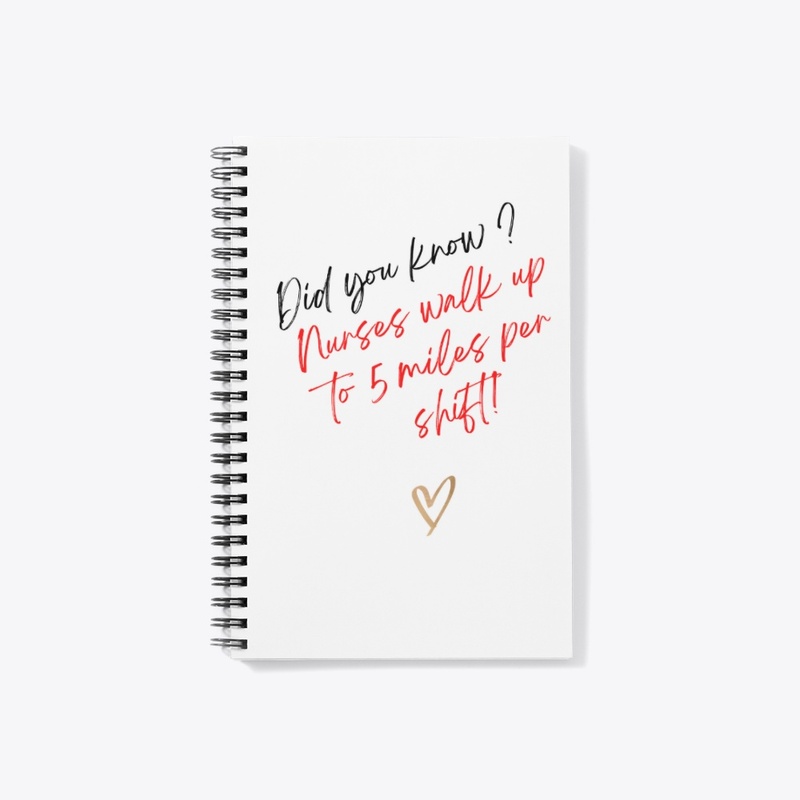 Did you know ?
Nurses walk up
to 5 miles per
shift!